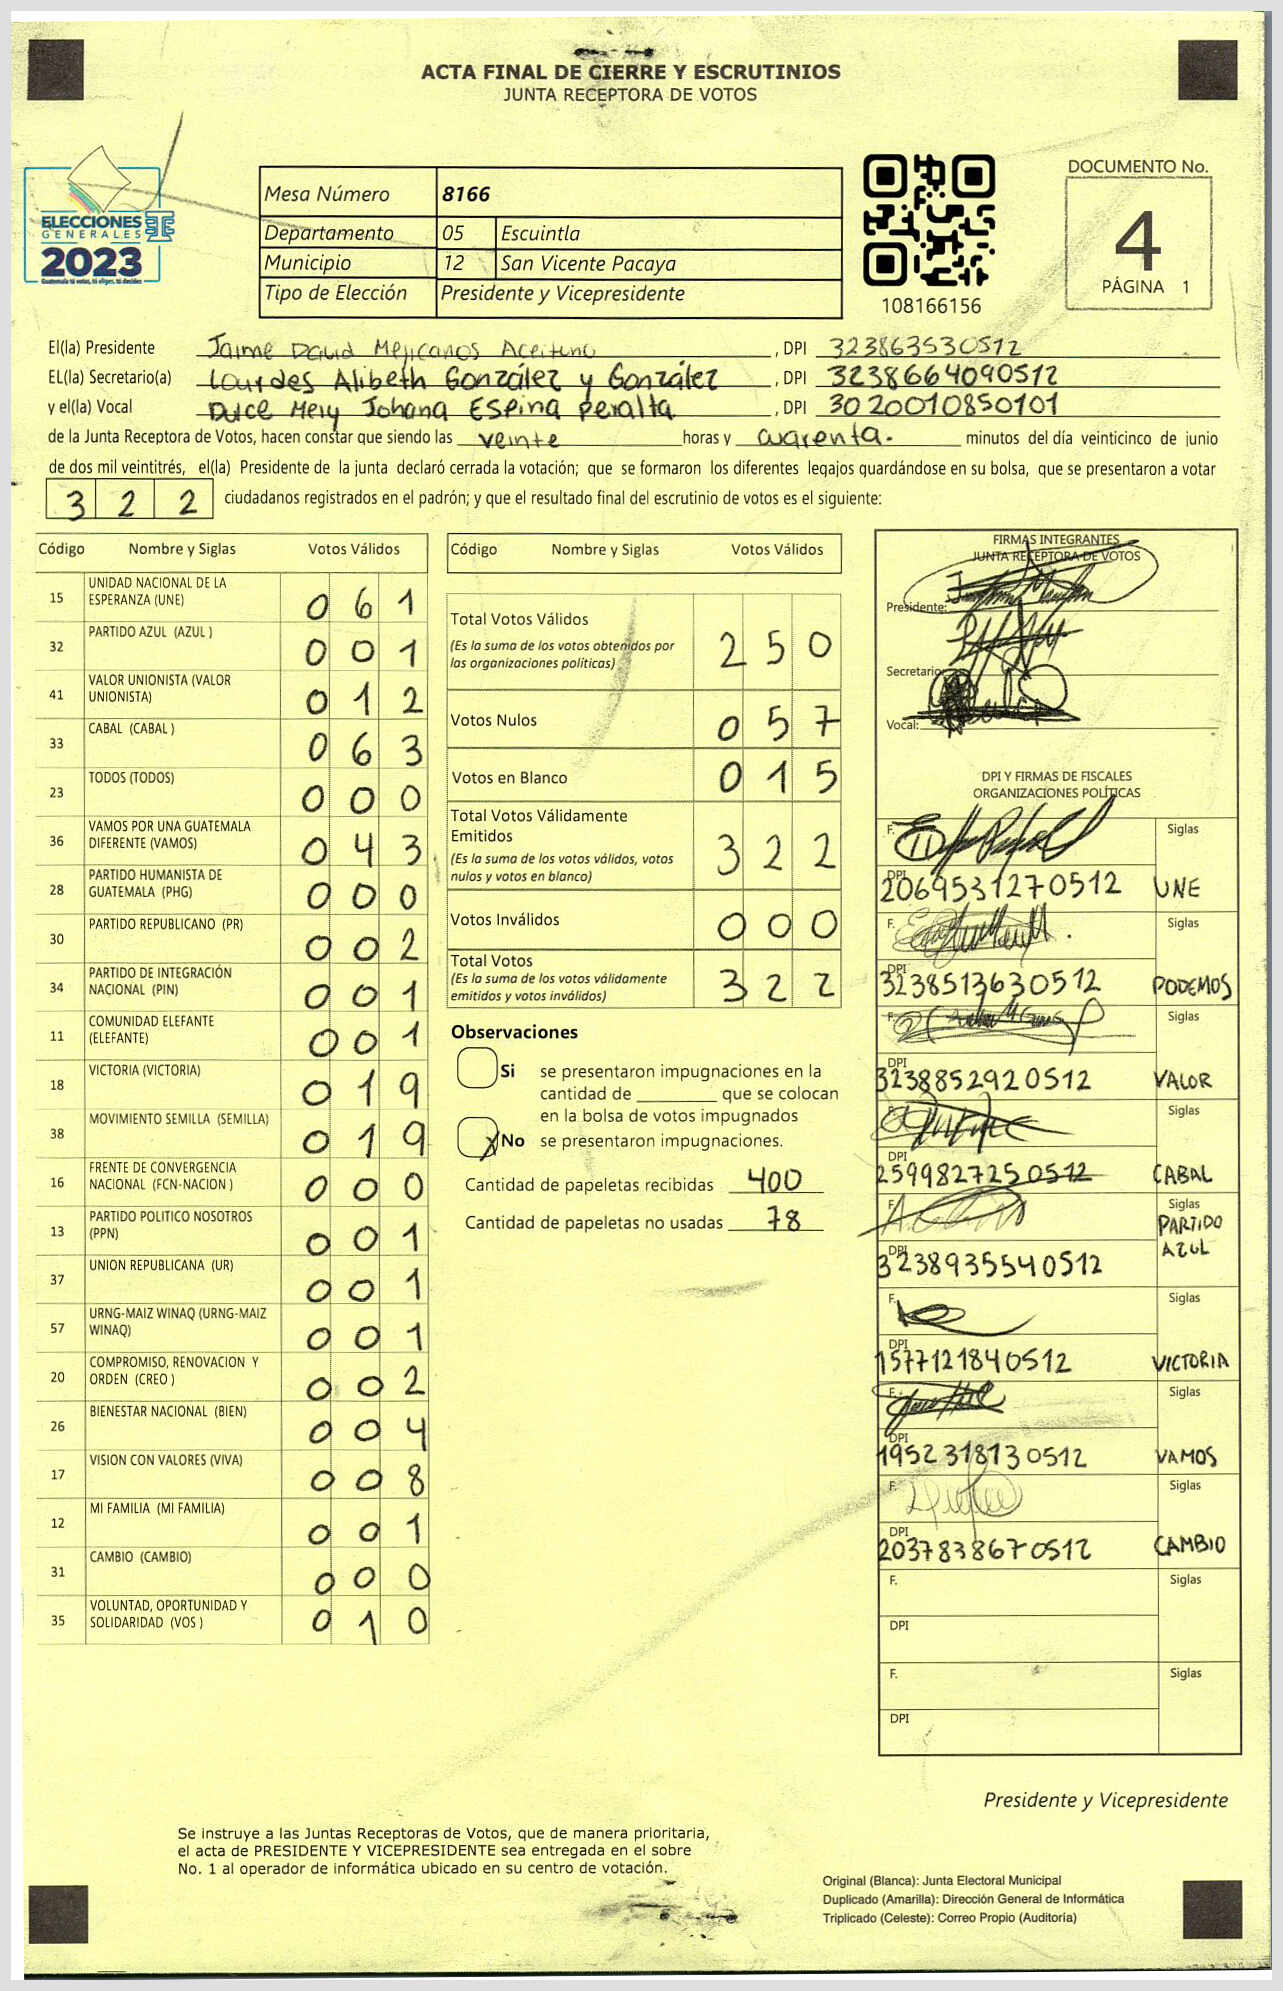 ACTA FINAL DE CIERRE Y ESCRUTINIOS
JUNTA RECEPTORA DE VOTOS
ELECCIONES
GENERALES
2023
Guatemala tú votas, tú eliges, tú decides
Mesa Número 8166
Departamento 05 Escuintla
Municipio 12 San Vicente Pacaya
Tipo de Elección Presidente y Vicepresidente
108166156
DOCUMENTO No.
4
PÁGINA 1
El(la) Presidente Jaime David Mejicanos Aceituno , DPI 323863530512
EL(la) Secretario(a) Lourdes Alibeth González y González , DPI 3238664090512
y el(la) Vocal Dulce Mery Johana Espina Peralta , DPI 3020010850101
de la Junta Receptora de Votos, hacen constar que siendo las veinte horas y cuarenta. minutos del día veinticinco de junio
de dos mil veintitrés, el(la) Presidente de la junta declaró cerrada la votación; que se formaron los diferentes legajos guardándose en su bolsa, que se presentaron a votar
3 2 2 ciudadanos registrados en el padrón; y que el resultado final del escrutinio de votos es el siguiente:
Código Nombre y Siglas Votos Válidos
15 UNIDAD NACIONAL DE LA ESPERANZA (UNE) 0 6 1
32 PARTIDO AZUL (AZUL ) 0 0 1
41 VALOR UNIONISTA (VALOR UNIONISTA) 0 1 2
33 CABAL (CABAL ) 0 6 3
23 TODOS (TODOS) 0 0 0
36 VAMOS POR UNA GUATEMALA DIFERENTE (VAMOS) 0 4 3
28 PARTIDO HUMANISTA DE GUATEMALA (PHG) 0 0 0
30 PARTIDO REPUBLICANO (PR) 0 0 2
34 PARTIDO DE INTEGRACIÓN NACIONAL (PIN) 0 0 1
11 COMUNIDAD ELEFANTE (ELEFANTE) 0 0 1
18 VICTORIA (VICTORIA) 0 1 9
38 MOVIMIENTO SEMILLA (SEMILLA) 0 1 9
16 FRENTE DE CONVERGENCIA NACIONAL (FCN-NACION ) 0 0 0
13 PARTIDO POLITICO NOSOTROS (PPN) 0 0 1
37 UNION REPUBLICANA (UR) 0 0 1
57 URNG-MAIZ WINAQ (URNG-MAIZ WINAQ) 0 0 1
20 COMPROMISO, RENOVACION Y ORDEN (CREO ) 0 0 2
26 BIENESTAR NACIONAL (BIEN) 0 0 4
17 VISION CON VALORES (VIVA) 0 0 8
12 MI FAMILIA (MI FAMILIA) 0 0 1
31 CAMBIO (CAMBIO) 0 0 0
35 VOLUNTAD, OPORTUNIDAD Y SOLIDARIDAD (VOS ) 0 1 0
Código Nombre y Siglas Votos Válidos
Total Votos Válidos 2 5 0
(Es la suma de los votos obtenidos por
las organizaciones políticas)
Votos Nulos 0 5 7
Votos en Blanco 0 1 5
Total Votos Válidamente
Emitidos 3 2 2
(Es la suma de los votos válidos, votos
nulos y votos en blanco)
Votos Inválidos 0 0 0
Total Votos 3 2 2
(Es la suma de los votos válidamente
emitidos y votos inválidos)
Observaciones
Si se presentaron impugnaciones en la
cantidad de ________ que se colocan
en la bolsa de votos impugnados
X No se presentaron impugnaciones.
Cantidad de papeletas recibidas 400
Cantidad de papeletas no usadas 78
FIRMAS INTEGRANTES
JUNTA RECEPTORA DE VOTOS
Presidente:
Secretario:
Vocal:
DPI Y FIRMAS DE FISCALES
ORGANIZACIONES POLÍTICAS
F. Siglas
DPI 2069531270512 UNE
F. Siglas
DPI 3238513630512 PODEMOS
F. Siglas
DPI 3238852920512 VALOR
F. Siglas
DPI 2599827250512 CABAL
F. Siglas
PARTIDO
AZUL
DPI 3238935540512
F. Siglas
DPI 1577121840512 VICTORIA
F. Siglas
DPI 1952318130512 VAMOS
F. Siglas
DPI 2037838670512 CAMBIO
F. Siglas
DPI
F. Siglas
DPI
Presidente y Vicepresidente
Se instruye a las Juntas Receptoras de Votos, que de manera prioritaria,
el acta de PRESIDENTE Y VICEPRESIDENTE sea entregada en el sobre
No. 1 al operador de informática ubicado en su centro de votación.
Original (Blanca): Junta Electoral Municipal
Duplicado (Amarilla): Dirección General de Informática
Triplicado (Celeste): Correo Propio (Auditoría)